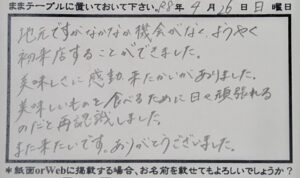 ままテーブルに置いておいて下さい。R8年4月26日日曜日
地元ですがなかなか機会がなく、ようやく
初来店することができました。
美味しくに感動、来たかいがありました。
美味しいものを食べるために日々頑張れる
のだと再認識しました。
また来たいです。ありがとうございました。
*紙面orWebに掲載する場合、お名前を載せてもよろしいでしょうか?